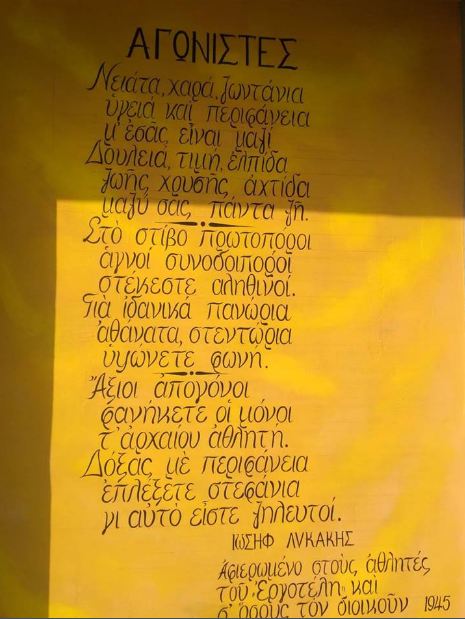 ΑΓΩΝΙΣΤΕΣ
Νειάτα, χαρά, ζωντάνια
ὑγειά καί περιφάνεια
μ' ἐσᾶς εἶναι μαζί
Δουλειά, τιμή, ἐλπίδα
ζωῆς χρυσῆς ἀχτίδα
μαζύ σᾶς πάντα ζῆ.
Στὸ στίβο πρωτοποροι
ἁγνοί συνοδοιπόροι
στέκεστε αληθινοί.
Γιὰ ἰδανικά πανώρια
ἀθάνατα, στεντώρια
ὑψώνετε φωνή.
Ἄξιοι ἀπογόνοι
φανήκετε οἱ μόνοι
τ' ἀρχαίου ἀθλητή.
Δόξας μὲ περιφάνεια
ἐπλέξετε στεφάνια
γι αὐτὸ εἶστε ζηλευτοί.
ΙΩΣΗΦ ΛΥΚΑΚΗΣ
Ἀφιερωμένο στοὺς ἀθλητές
τοῦ "Εργοτέλη" καὶ
σ' ὅσους τὸν διοικοῦν 1945